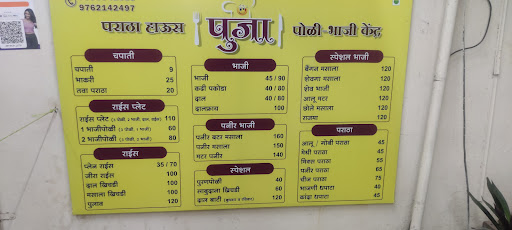 9762142497
पराठा हाऊस पुजा पोळी भाजी केंद्र
चपाती
चपाती 9
भाकरी 25
तवा पराठा 20
राईस प्लेट
राईस प्लेट 110
1 भाजीपोळी 60
2 भाजीपोळी 80
राईस
प्लेन राईस 35 / 70
जीरा राईस 100
दाल खिचडी 100
मसाला खिचडी 100
पुलाव 120
भाजी
भाजी 45 / 90
कढी पकोडा 40 / 80
दाल 40 / 80
दालफ्राय 100
पनीर भाजी
पनीर बटर मसाला 160
पनीर मसाला 150
मटर पनीर 140
स्पेशल
पुरणपोळी 40
साबुदाना खिचडी 60
दाल बाटी 120
स्पेशल भाजी
बैंगन मसाला 120
शेवगा मसाला 120
शेव भाजी 120
आलू मटर 120
छोले मसाला 120
राजमा 120
पराठा
आलू / गोबी पराठा 45
मेथी पराठा 45
मिक्स पराठा 55
पनीर पराठा 65
चीज पराठा 75
भाजणी थपाटा 45
कांदा थपाटा 45